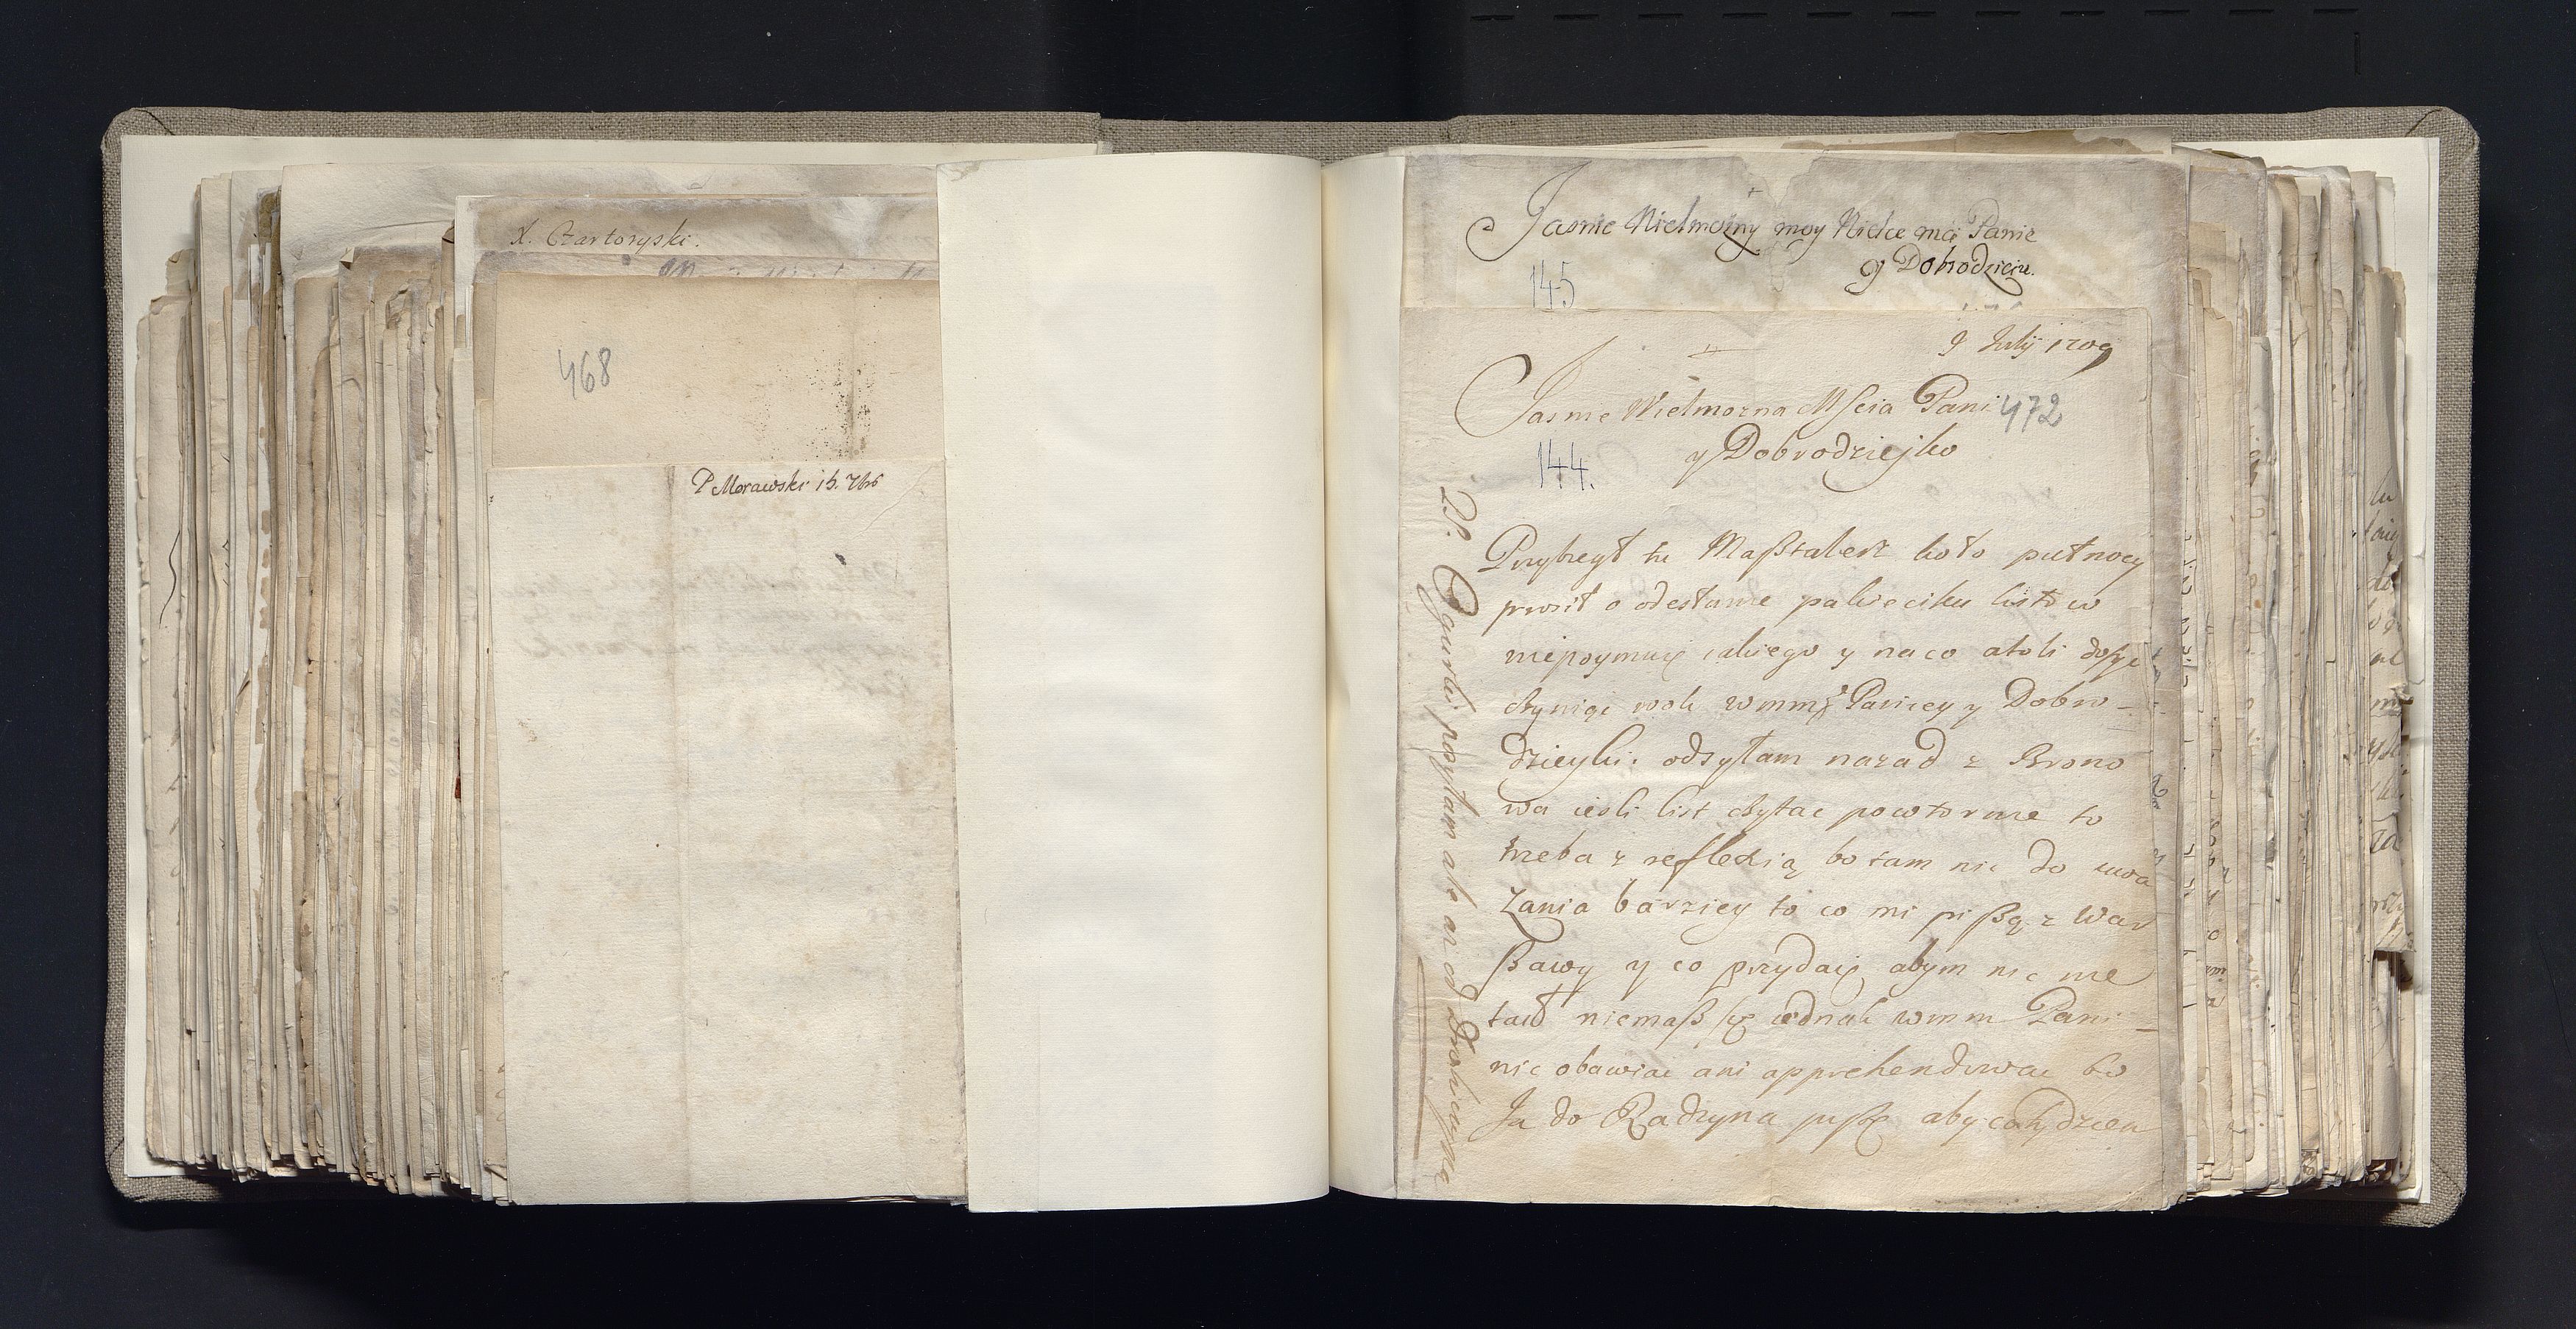 X. Czartoryski.
468
P Morawski 15. 7bris
Jasnie Wielmozny moy Wielce mci Panie
y Dobrodzieiu.
145
9 Julij 1709
Jasnie Wielmozna Mscia Pani
472
y Dobrodziejko
144.
Przybiegł tu Maßtalerz koło pułnocy
prosił o odesłanie pakieciku listow
niepoymuię iakiego y na co atoli dosyc
czyniąc woli wmm Paniey y Dobro-
dzieyki odsyłam nazad z Brono
wa iesli list czytac powtornie to
trzeba z reflexią bo tam nic do uwa
zania barziey to co mi pißą z War
ßawy y co przydaię abym nic nie
taił niemaß się iednak wmm Pani
nic obawiac ani apprehendowac bo
Ja do Radzyna pißę aby co tydzien
PS. Ogurki posyłam ale az od Drohiczyna